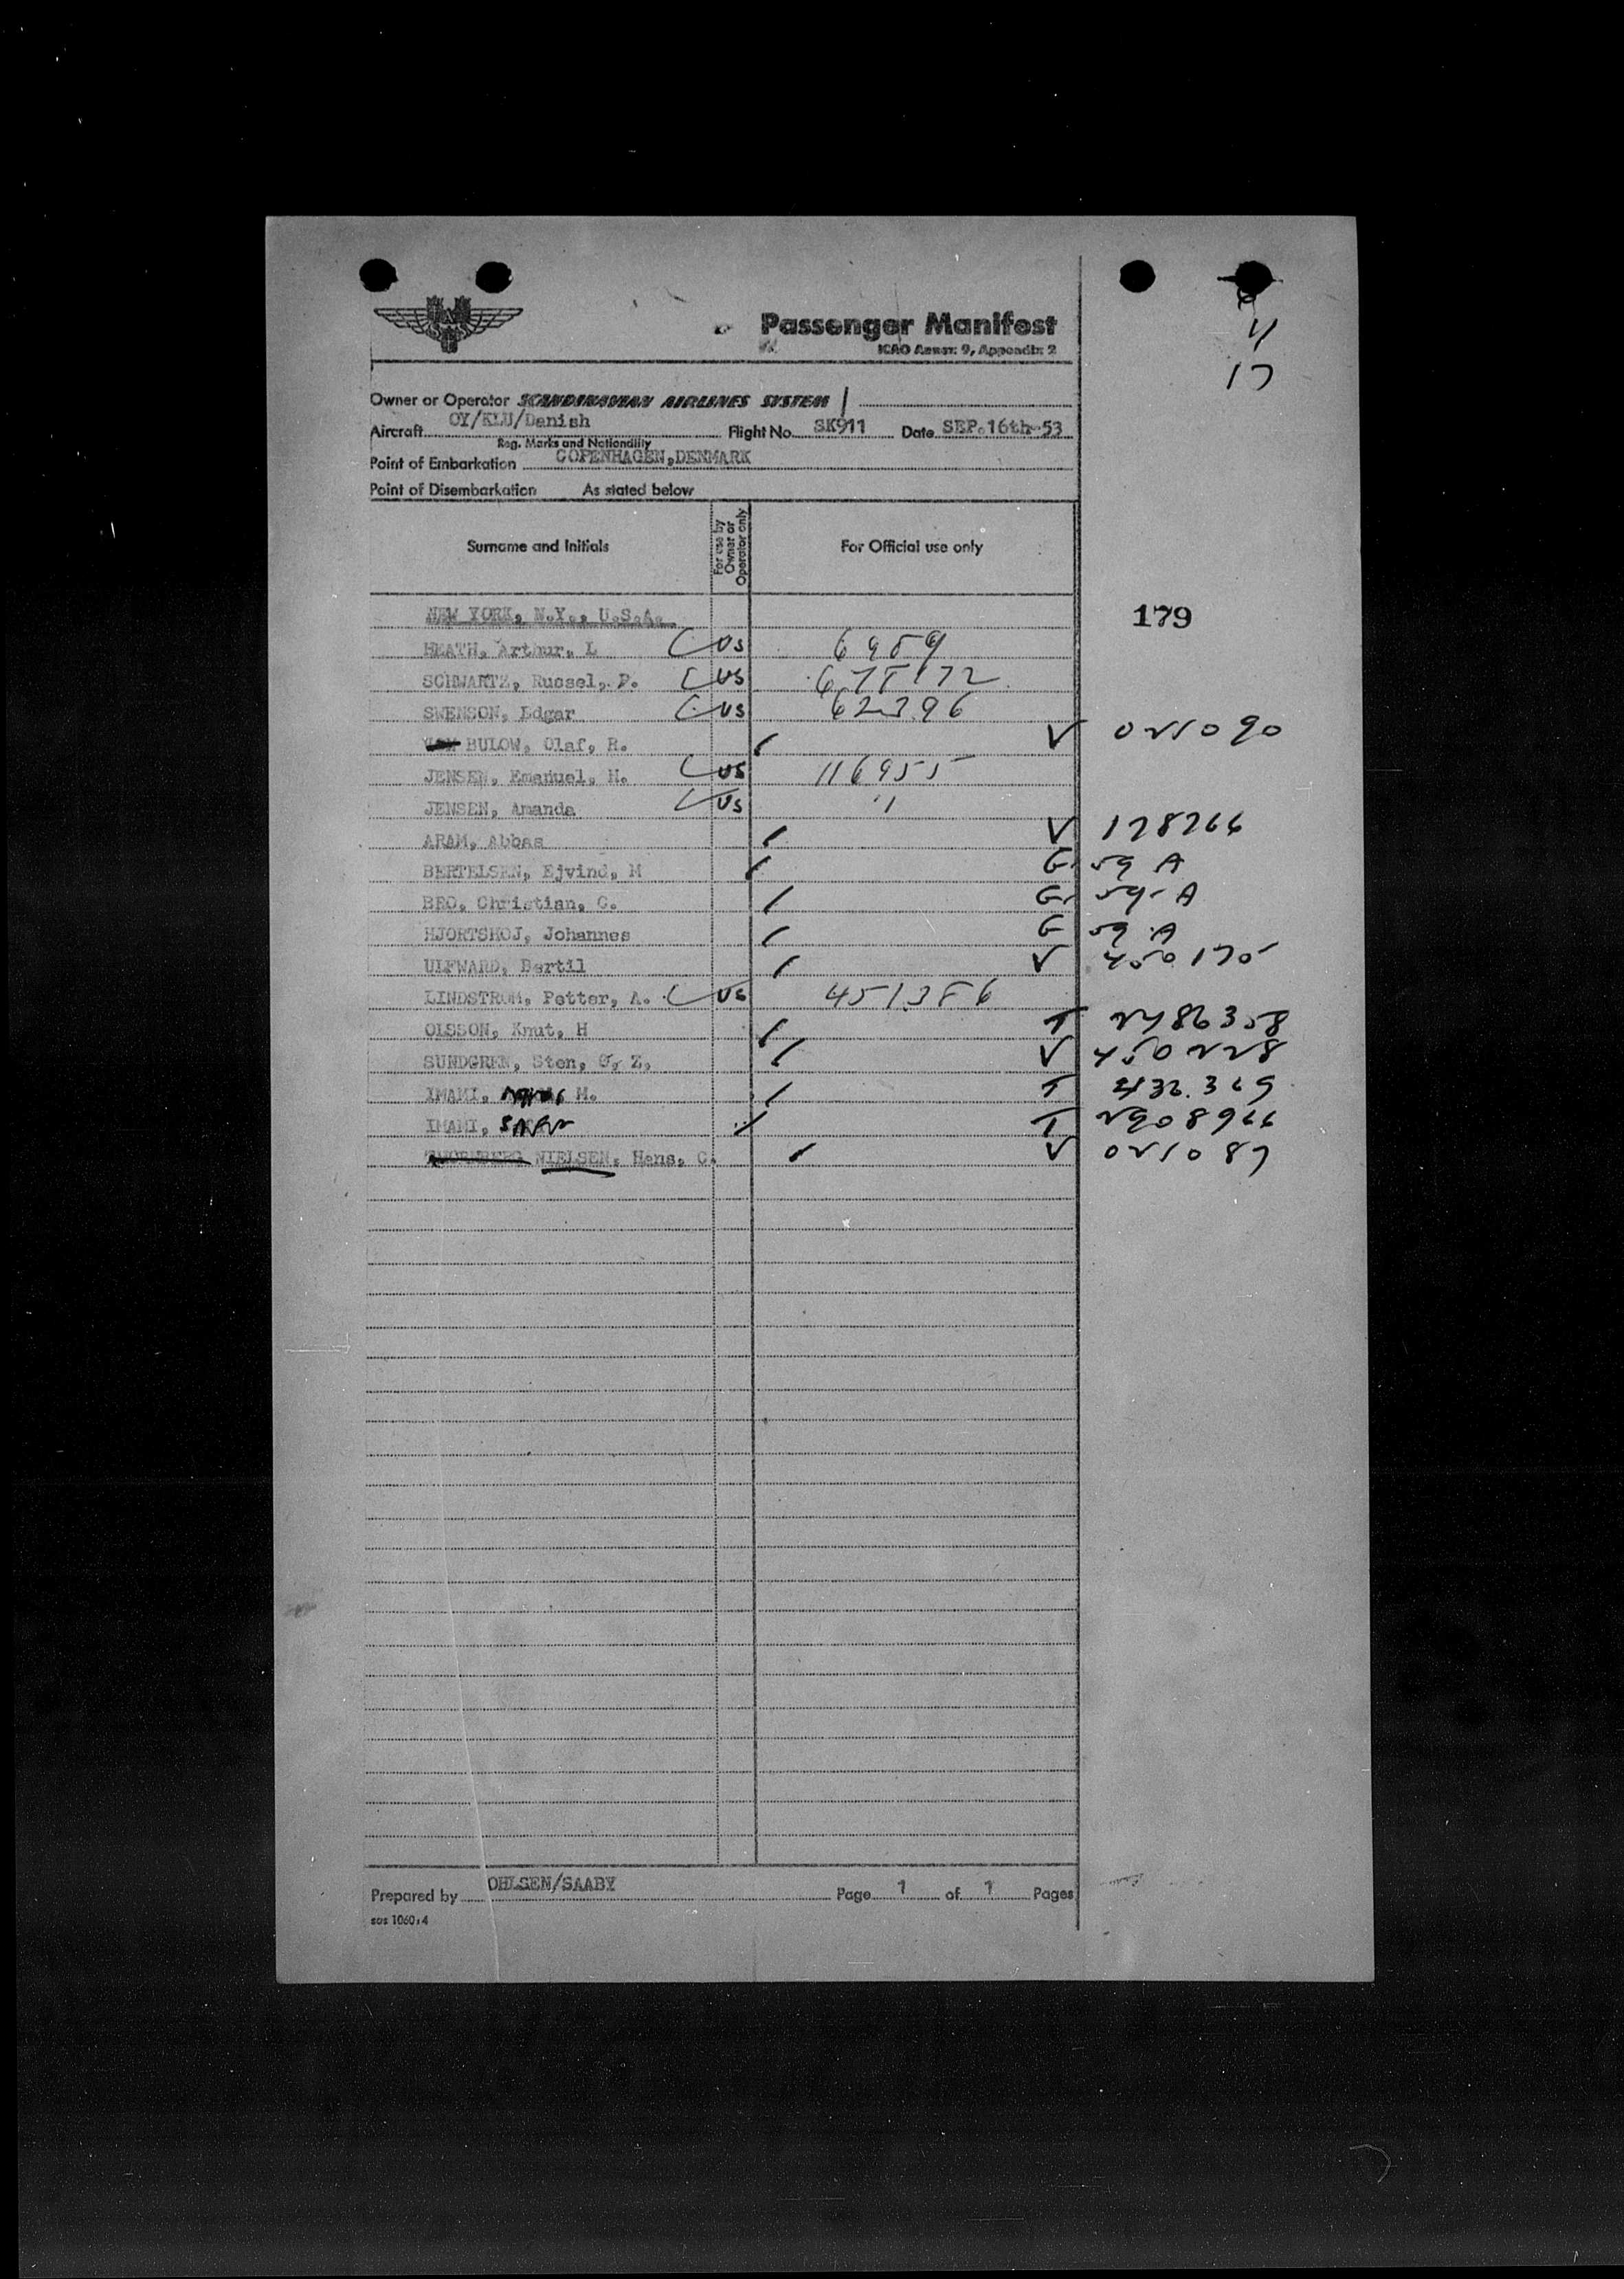 Passenger Manifest
ICAO Annex 9, Appendix 2
6
11
17
Owner or Operator SCANDINAVIAN AIRLINES SYSTEM
Aircraft OY/KLU/Danish Flight No. SK911 Date SEP.16th-53
Reg. Marks and Nationality
Point of Embarkation COPENHAGEN,DENMARK
Point of Disembarkation As stated below
Surname and Initials For use by Owner or Operator only For Official use only
NEW YORK, N.Y., U.S.A. 179
HEATH, Arthur, L US 6959
SCHWARTZ, Russel, P. US
SWENSON, Edgar US 62396
BULOW, Olaf, R. V 021090
JENSEN, Emanuel, H. US 116955
JENSEN, Amanda US "
ARAM, Abbas V 128266
BERTELSEN, Ejvind, M G 59 A
BRO, Christian, C. G 59-A
HJORTSHOJ, Johannes G 59 A
ULFWARD, Bertil V
LINDSTROM, Petter, A. US 451386
OLSSON, Knut, H T 2486358
SUNDGREN, Sten, Z, V 450228
IMAMI, M. T
IMAMI, T
THORNBERG NIELSEN, Hans, C. V 021087
Prepared by OHLSEN/SAABY Page 1 of 1 Pages
sas 1060:4